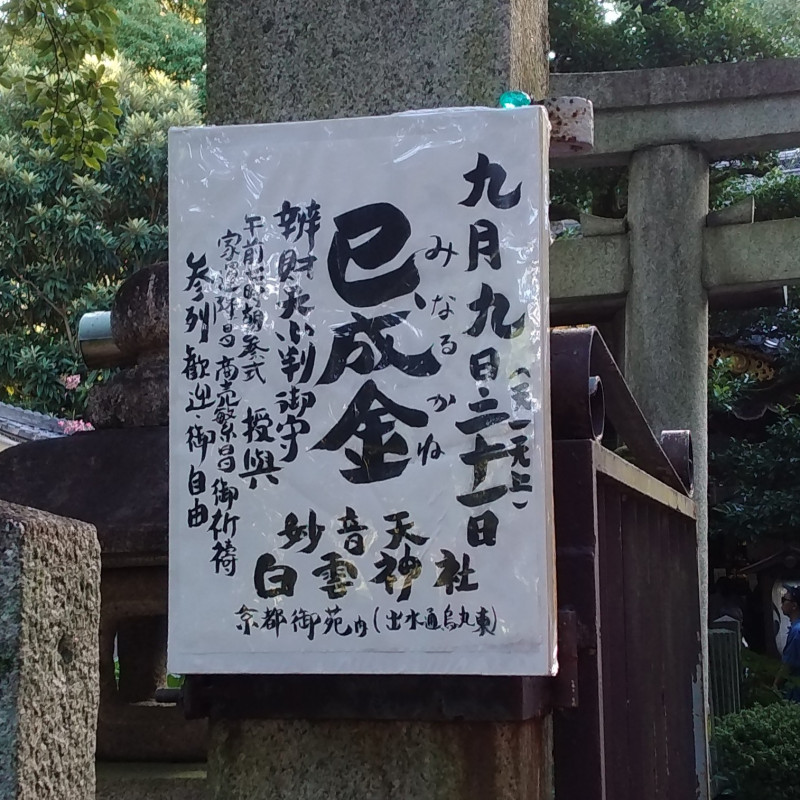 九月九日二十一日
みなるかね
巳成金
辨財天小判御守
授與
家運隆昌商売繁昌御祈祷
参列歓迎御自由
妙音天
白雲神社
京都御苑内(出水通烏丸東)